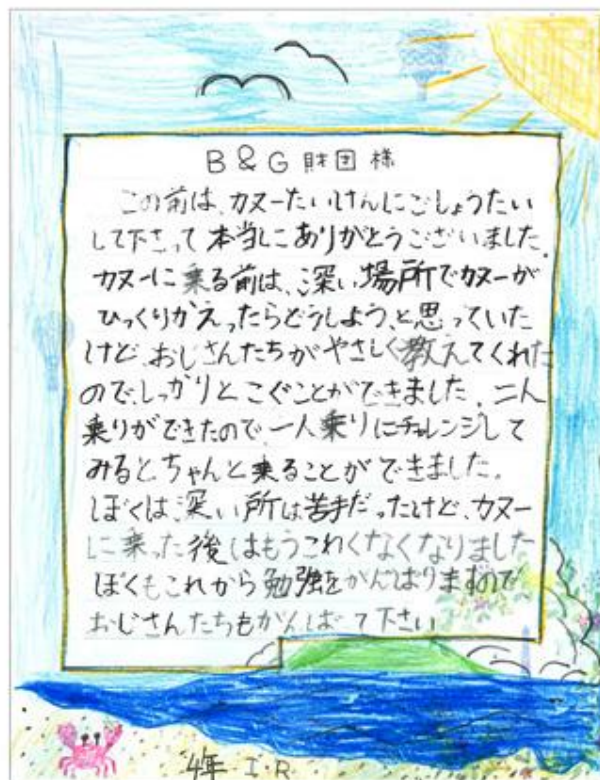 B&G財団様
この前は、カヌーたいけんにごしょうたい
して下さって本当にありがとうございました。
カヌーに乗る前は、深い場所でカヌーが
ひっくりかえったらどうしよう、と思っていた
けど、おじさんたちがやさしく教えてくれた
ので、しっかりとこぐことができました。二人
乗りができたので、一人乗りにチャレンジして
みると、ちゃんと乗ることができました。
ぼくは、深い所は苦手だったけど、カヌー
に乗った後はもうこわくなくなりました
ぼくもこれから勉強をがんばりますので
おじさんたちもがんばって下さい
4年 I.R